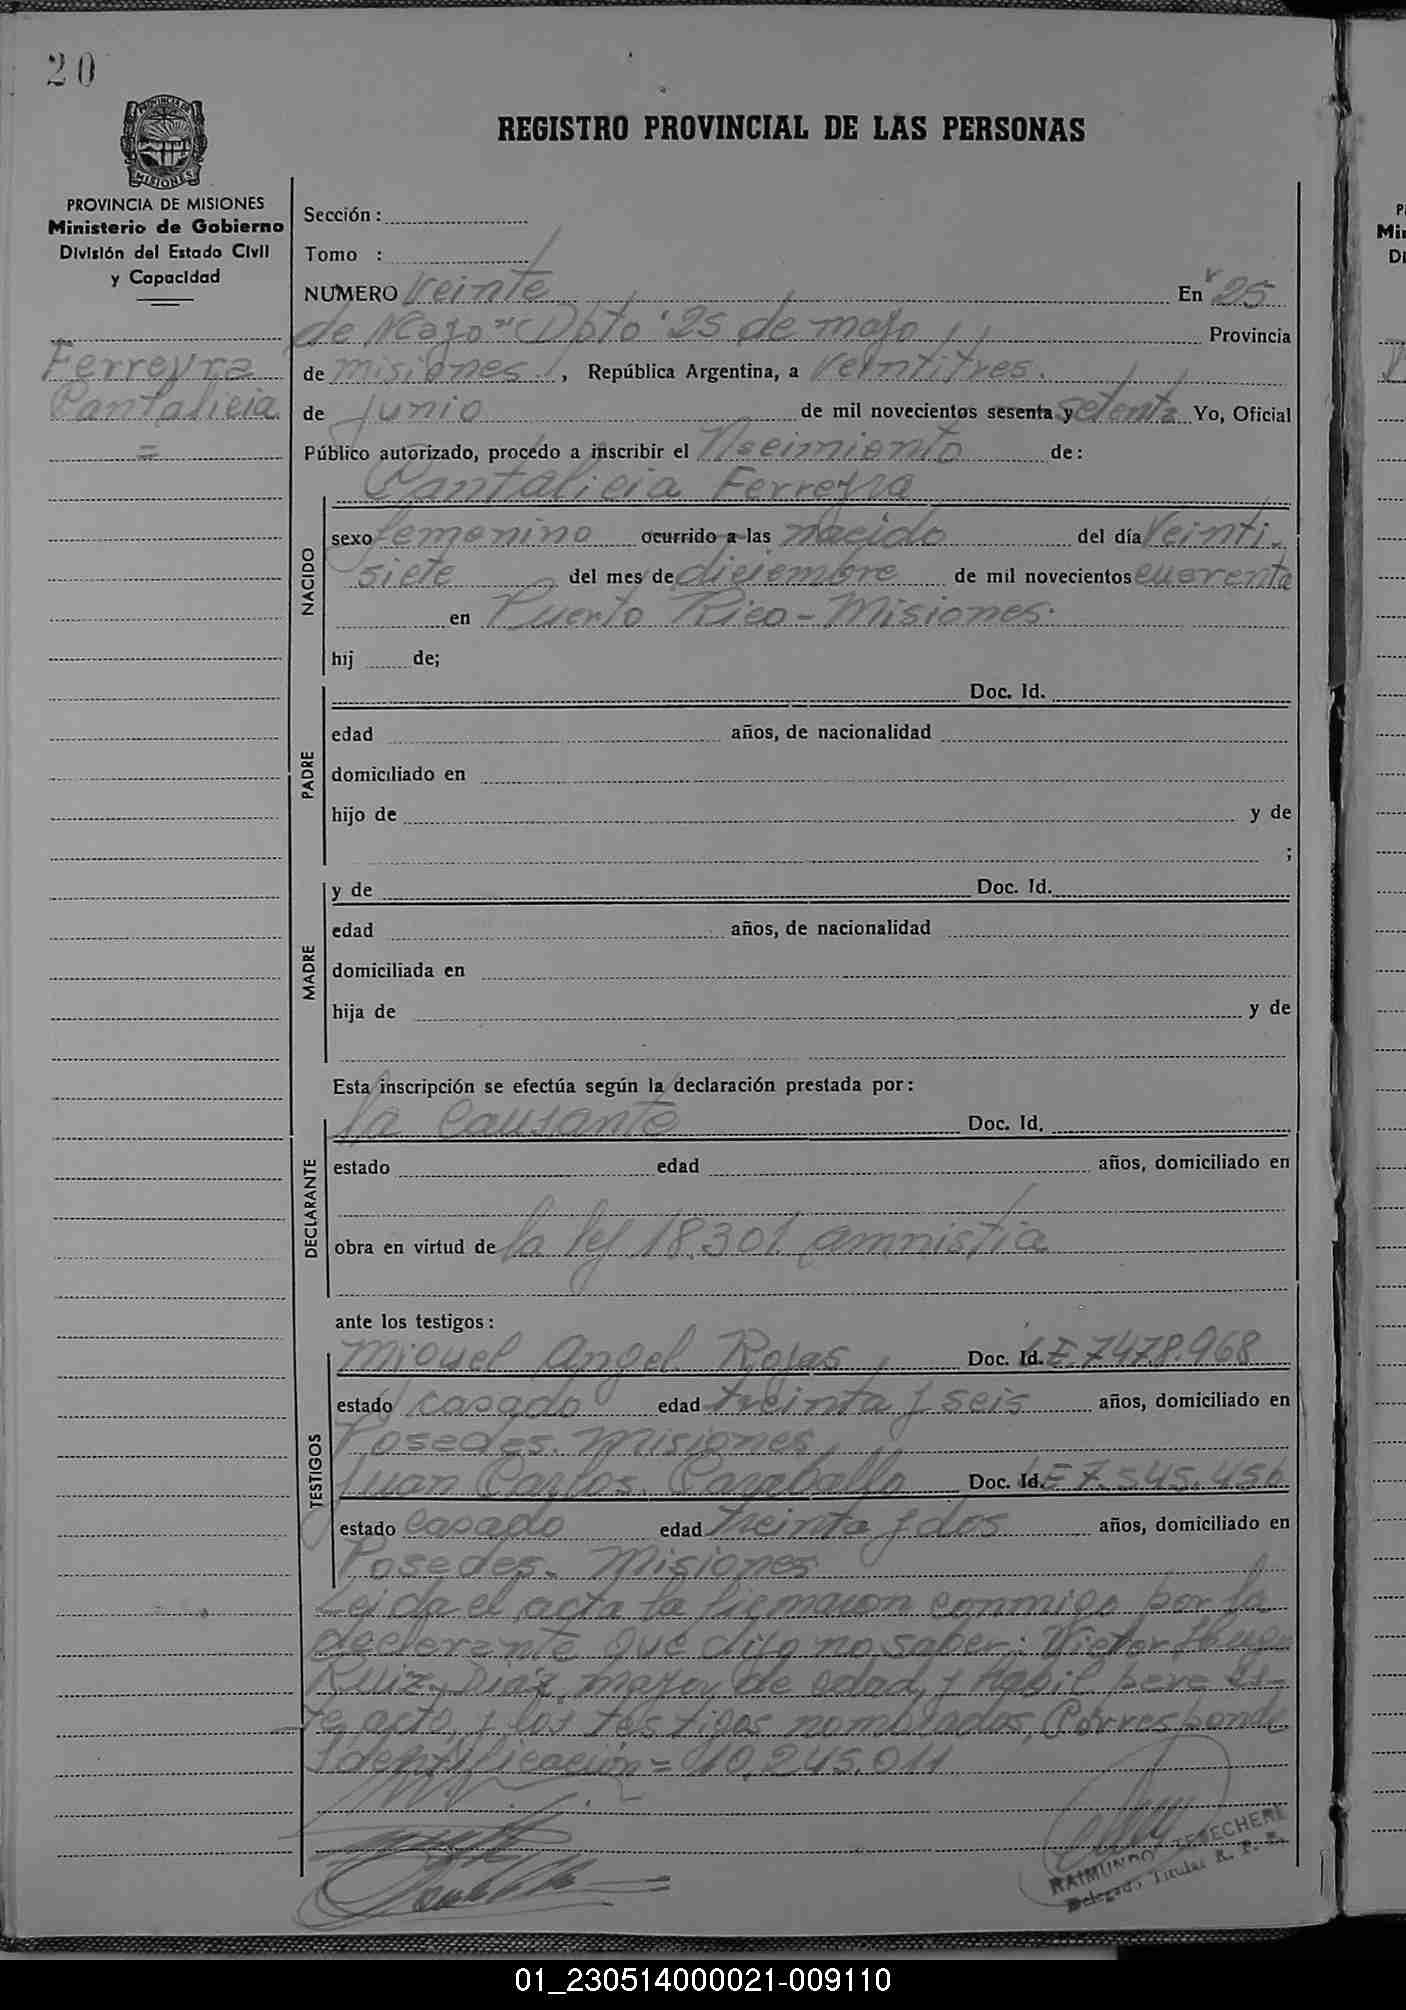 20
PROVINCIA DE
MISIONES
REGISTRO PROVINCIAL DE LAS PERSONAS
PROVINCIA DE MISIONES
Ministerio de Gobierno
División del Estado Civil
y Capacidad
Ferreyra
Cantalicia
=
Sección :
Tomo :
NUMERO Veinte En "25
de Mayo" Dpto "25 de mayo Provincia
de misiones , República Argentina, a veintitres.
de Junio de mil novecientos sesenta y setenta Yo, Oficial
Público autorizado, procedo a inscribir el Nseimiento de:
Cantalicia Ferreyra
NACIDO
sexo femenino ocurrido a las nacido del día Veinti-
siete del mes de diciembre de mil novecientos cuarenta
en Puerto Rico - Misiones.
hij de;
PADRE
Doc. Id.
edad años, de nacionalidad
domiciliado en
hijo de y de
;
MADRE
y de Doc. Id.
edad años, de nacionalidad
domiciliada en
hija de y de
Esta inscripción se efectúa según la declaración prestada por:
DECLARANTE
la causante Doc. Id.
estado edad años, domiciliado en
obra en virtud de la ley 18.301 amnistia
ante los testigos:
TESTIGOS
Miguel Angel Rojas, Doc. Id. LE. 7478.968
estado casado edad treinta y seis años, domiciliado en
Posedes. Misiones,
Juan Carlos Caraballo Doc. Id. LE 7.545.456
estado casado edad treinta y dos años, domiciliado en
Posedes. Misiones
Leida el acta la firmaron conmigo por la
declerante que dijo no saber: Victor Hugo
Ruiz Diaz mayor de edad, y Habil para es-
te acto, y los testigos nombrados, Corresponde
Identificación = 10.245.011
RAIMUNDO TERECHERI
Delegado Titular R. P. P.
Mi
D
01_230514000021-009110